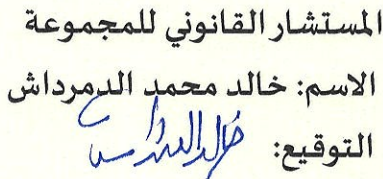 المستشار القانوني للمجموعة
الاسم: خالد محمد الدمرداش
التوقيع: خالد الدمرداش